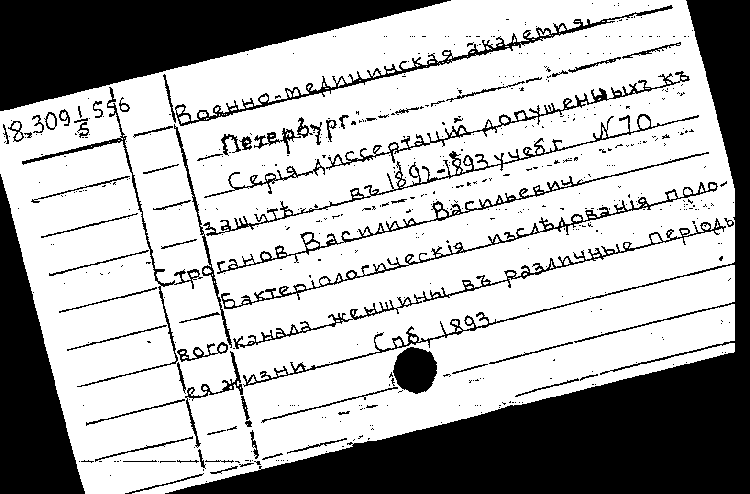 18.309 1/5 556
Военно-медицинская академія.
Петербург.
Серія диссертацій допущенныхъ къ
защитѣ... въ 1892-1893 учеб.г. N 70.
Строганов, Василий Васильевич.
Бактеріологическія изслѣдованія поло-
вого канала женщины въ различные періоды
ея жизни. Спб., 1893